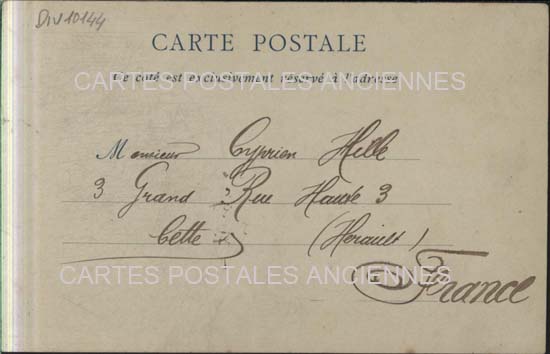 Div 10144
CARTE POSTALE
Ce côté est exclusivement réservé à l'adresse
CARTES POSTALES ANCIENNES
Monsieur Cyprien Hille
3 Grand Rue Haute 3
Cette (Herault)
CARTES POSTALES ANCIENNES
France